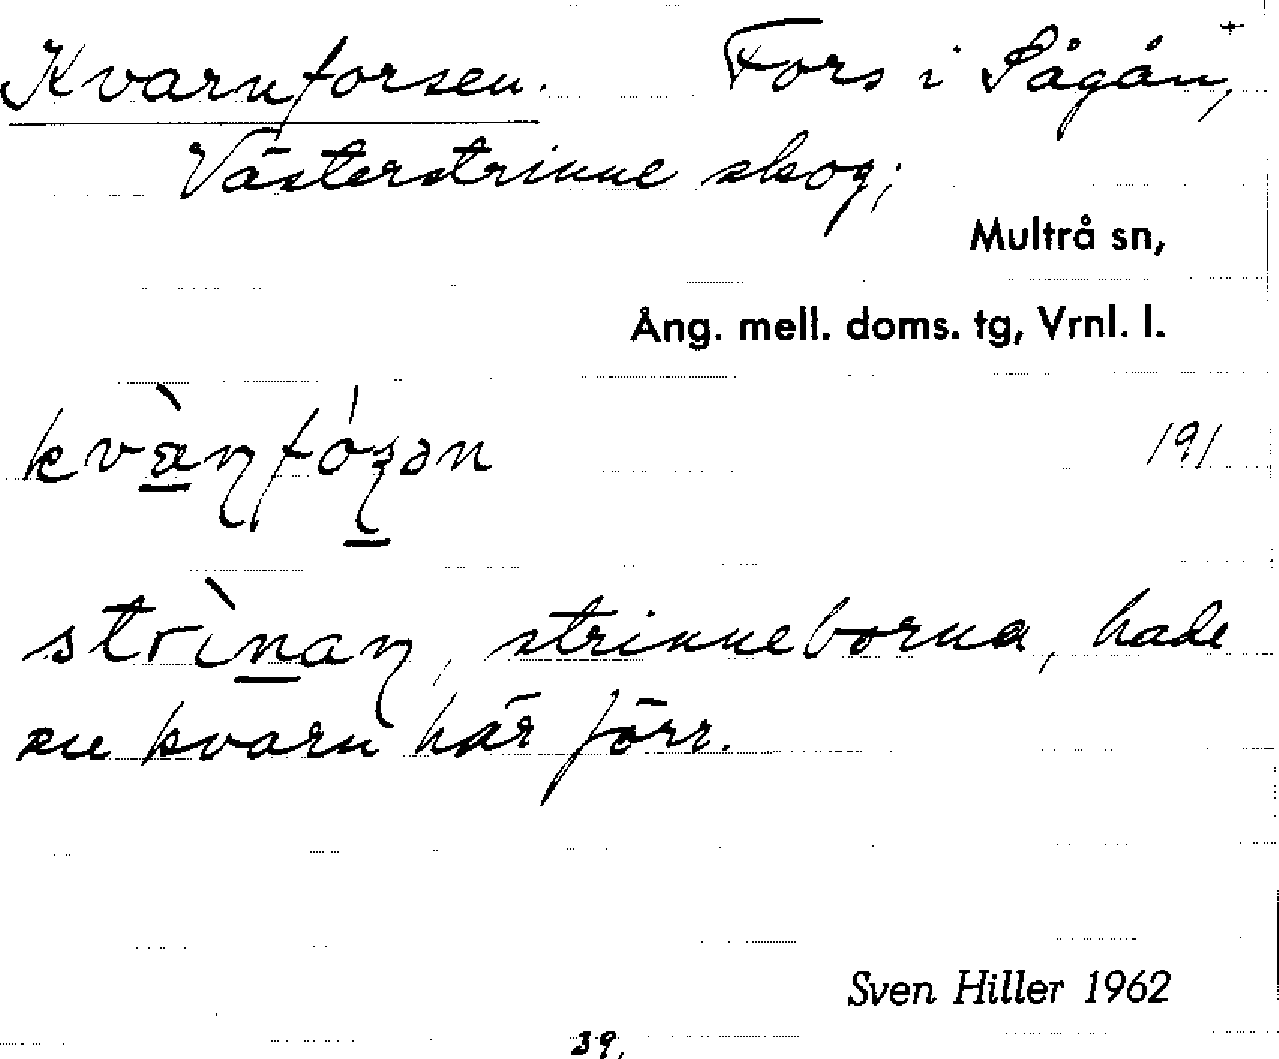 Kvarnforsen. Fors i Sågån, +
Västerstrinne skog;
Multrå sn,
Ång. mell. doms. tg, Vrnl. l.
kvɑ̀ɳfóʂən 191
strìnaɳ, strinneborna, hade
en kvarn här förr.
Sven Hiller 1962
39.